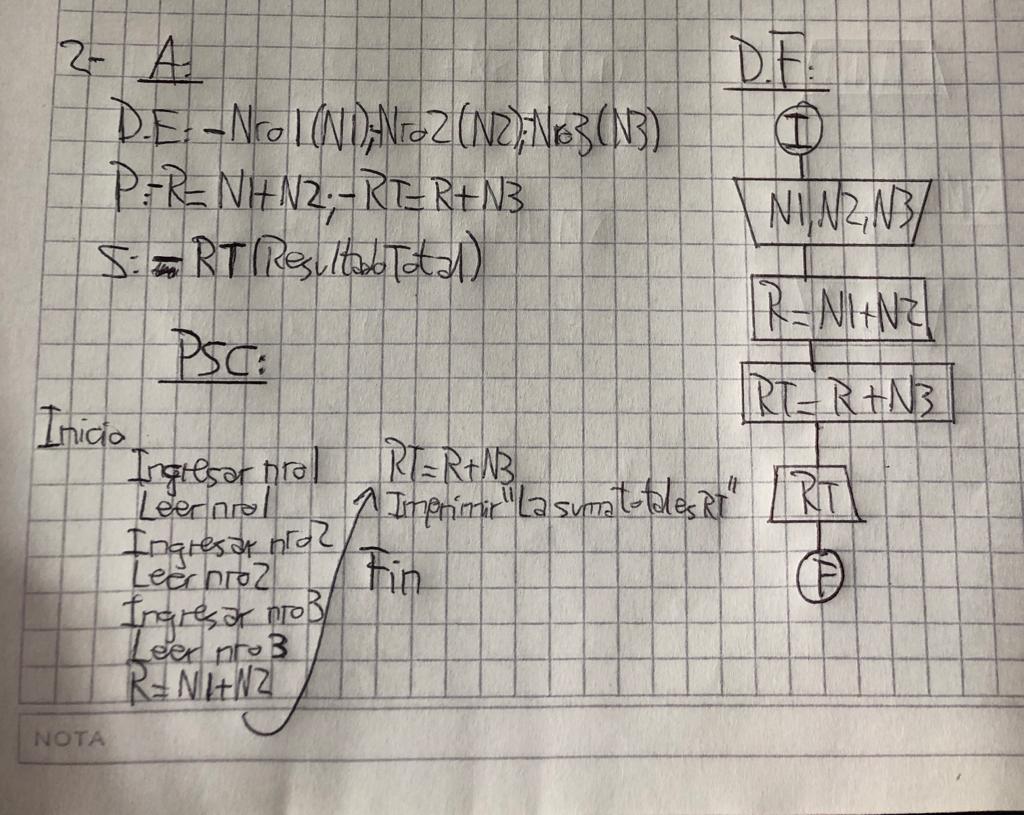 2- A:
D.E: -Nro1(N1);Nro2(N2);Nro3(N3)
P:-R=N1+N2;-RT=R+N3
S:-RT(ResultadoTotal)
PSC:
Inicio
Ingresar nro1
Leer nro1
Ingresar nro2
Leer nro2
Ingresar nro3
Leer nro3
R=N1+N2
RT=R+N3
Imprimir "La suma total es RT"
Fin
D.F:
I
N1,N2,N3
R=N1+N2
RT=R+N3
RT
F
NOTA